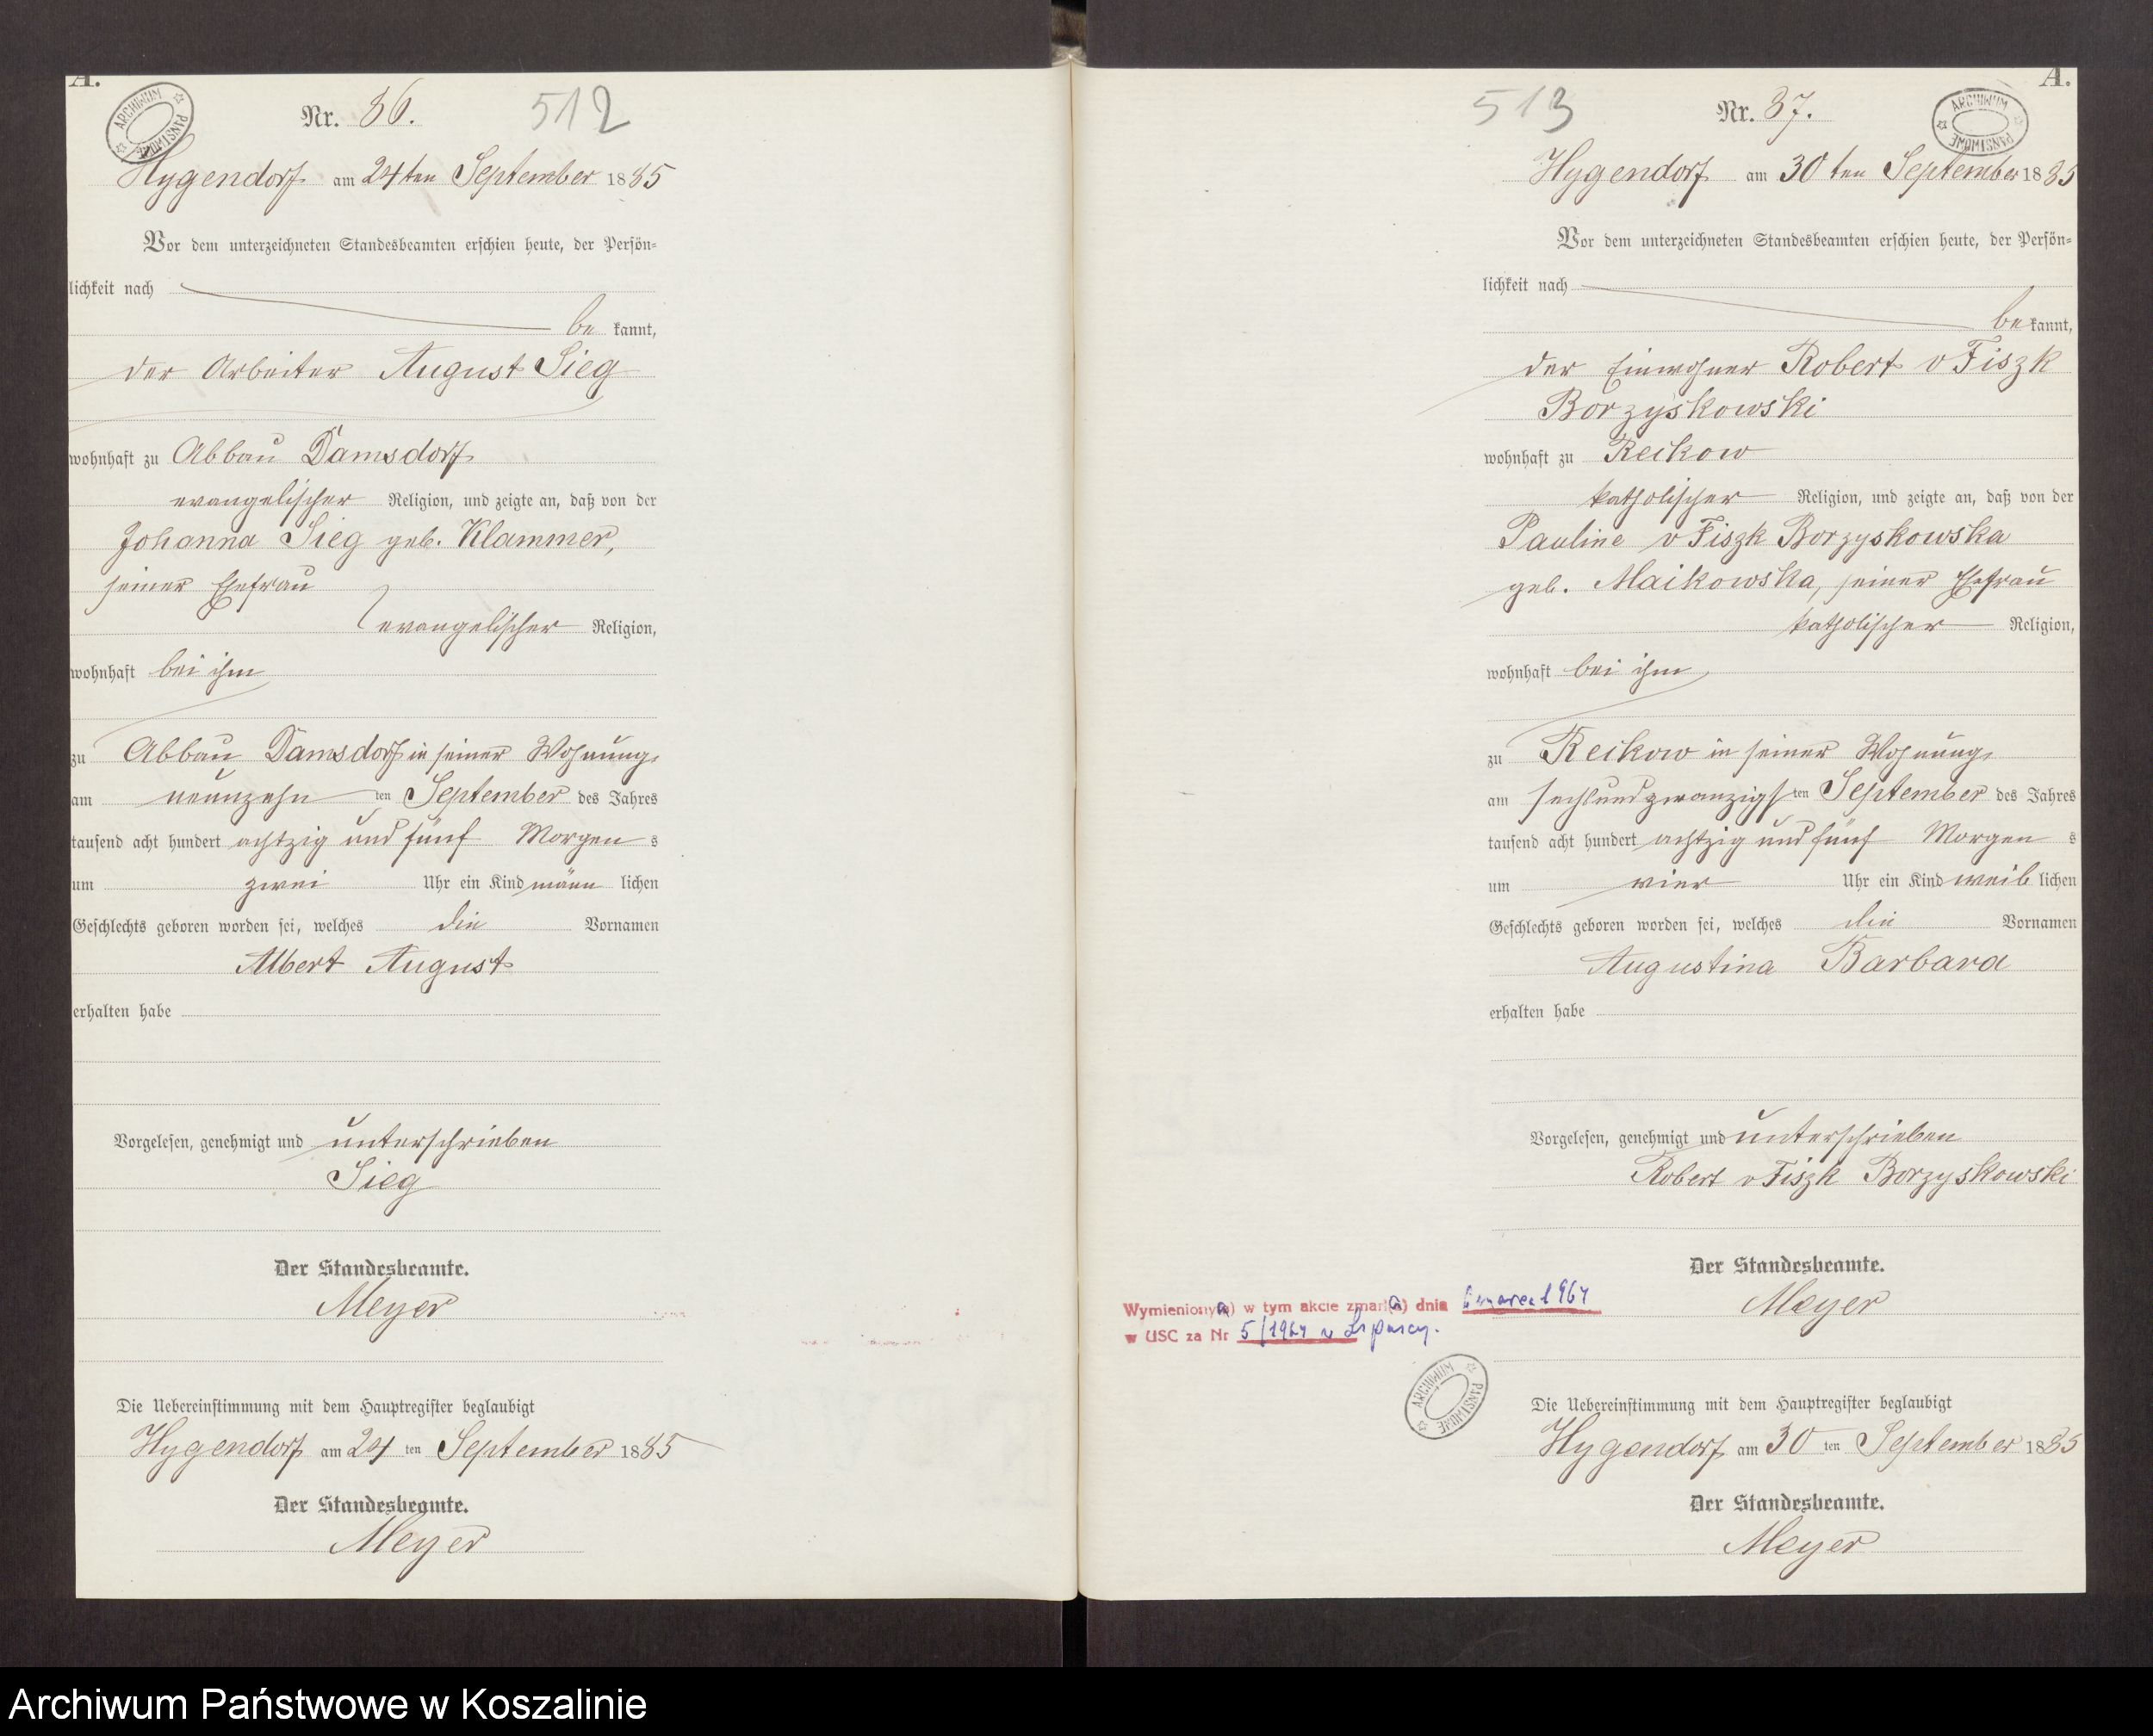 A.
ARCHIWUM PAŃSTWOWE
Nr. 86. 512
Hygendorf am 24ten September 1885
Vor dem unterzeichneten Standesbeamten erschien heute, der Persön-
lichkeit nach
be kannt,
der Arbeiter August Sieg
wohnhaft zu Abbau Damsdorf
evangelischer Religion, und zeigte an, daß von der
Johanna Sieg geb. Klammer,
seiner Ehefrau
evangelischer Religion,
wohnhaft bei ihm
zu Abbau Damsdorf in seiner Wohnung
am neunzehn ten September des Jahres
tausend acht hundert achtzig und fünf Morgen s
um zwei Uhr ein Kind männ lichen
Geschlechts geboren worden sei, welches die Vornamen
Albert August
erhalten habe
Vorgelesen, genehmigt und unterschrieben
Sieg
Der Standesbeamte.
Meyer
Die Uebereinstimmung mit dem Hauptregister beglaubigt
Hygendorf am 24 ten September 1885
Der Standesbeamte.
Meyer
A.
ARCHIWUM PAŃSTWOWE
513 Nr. 87.
Hygendorf am 30 ten September 1885
Vor dem unterzeichneten Standesbeamten erschien heute, der Persön-
lichkeit nach
be kannt,
der Einwohner Robert v Fiszk
Borzyskowski
wohnhaft zu Reikow
katholischer Religion, und zeigte an, daß von der
Pauline v Fiszk Borzyskowska
geb. Maikowska, seiner Ehefrau
katholischer Religion,
wohnhaft bei ihm
zu Reikow in seiner Wohnung
am sechsundzwanzigs ten September des Jahres
tausend acht hundert achtzig und fünf Morgen s
um vier Uhr ein Kind weib lichen
Geschlechts geboren worden sei, welches die Vornamen
Augustina Barbara
erhalten habe
Vorgelesen, genehmigt und unterschrieben
Robert v Fiszk Borzyskowski
Der Standesbeamte.
Meyer
Wymieniony(a) w tym akcie zmarł(a) dnia 6 marca 1964
w USC za Nr 5/1964 w
ARCHIWUM PAŃSTWOWE
Die Uebereinstimmung mit dem Hauptregister beglaubigt
Hygendorf am 30 ten September 1885
Der Standesbeamte.
Meyer
Archiwum Państwowe w Koszalinie